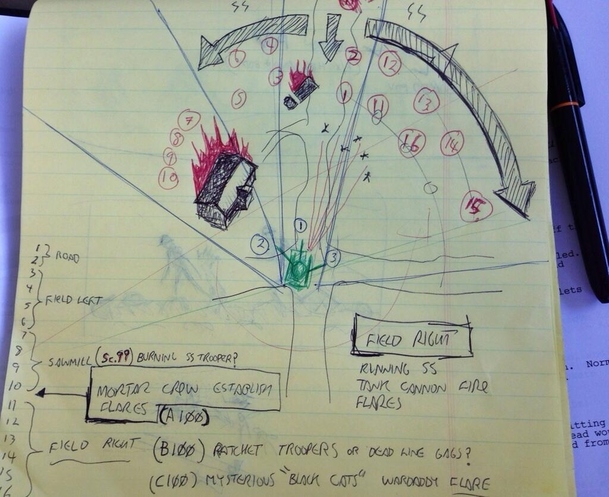 SS
SS
6
4
2
12
3
5
1
11
13
7
8
16
14
9
10
15
1
2
3
1
2
ROAD
3
4
5
6
FIELD LEFT
7
8
9
10
SAWMILL (Sc.99) BURNING SS TROOPER?
MORTAR CREW ESTABLISH
FLARES (A100)
FIELD RIGHT
RUNNING SS
TANK CANNON FIRE
FLARES
11
12
13
14
15
16
FIELD RIGHT
(B100) RATCHET TROOPERS OR DEAD LINE GAGS?
(C100) MYSTERIOUS "BLACK CATS" WARDADDY FLARE